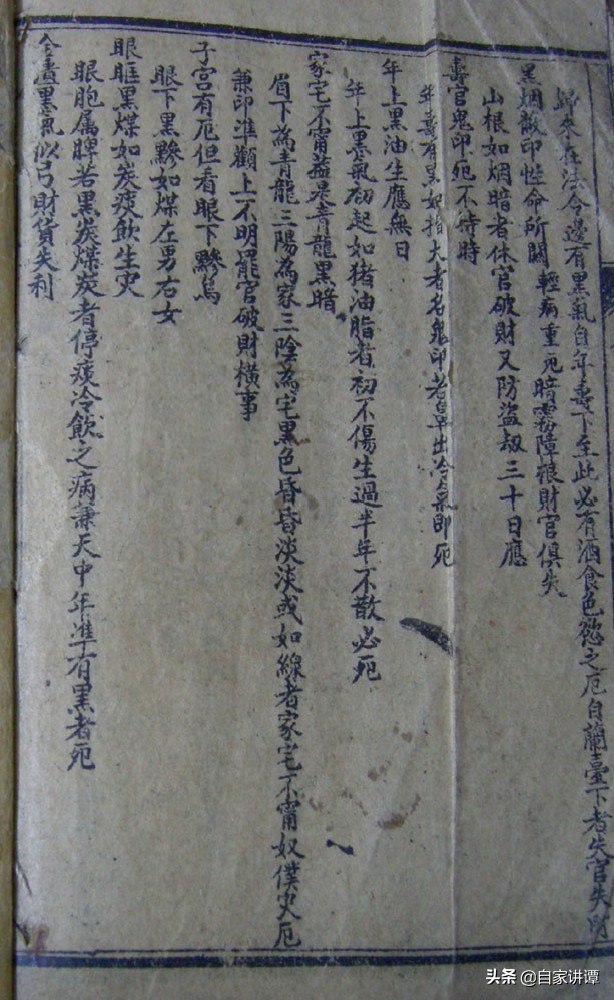 歸來在法令邊有黑氣自年壽下至此必有酒食色慾之厄自蘭臺下者失官失財
黑烟散印性命所關 輕病重死暗霧障根財官俱失
山根如烟暗者休官破財又防盜刼三十日應
壽官鬼印死不待時
年壽有黑如指大者名鬼印若鼻出冷氣即死
年上黑油生應無日
年上黑氣初起如猪油脂者初不傷生過半年不散必死
家宅不甯葢是青龍黑暗
眉下為青龍三陽為家三陰為宅黑色昏昏淡淡或如線者家宅不甯奴僕災厄
兼印準顴上不明罷官破財橫事
子宮有厄但看眼下黲烏
眼下黑黲如煤左男右女
眼眶黑煤如炭痰飲生災
眼胞属脾若黑炭煤炭者停痰冷飲之病兼天中年準有黑者死
金匱黑氣似弓財貨失利
头条 @自家讲谭